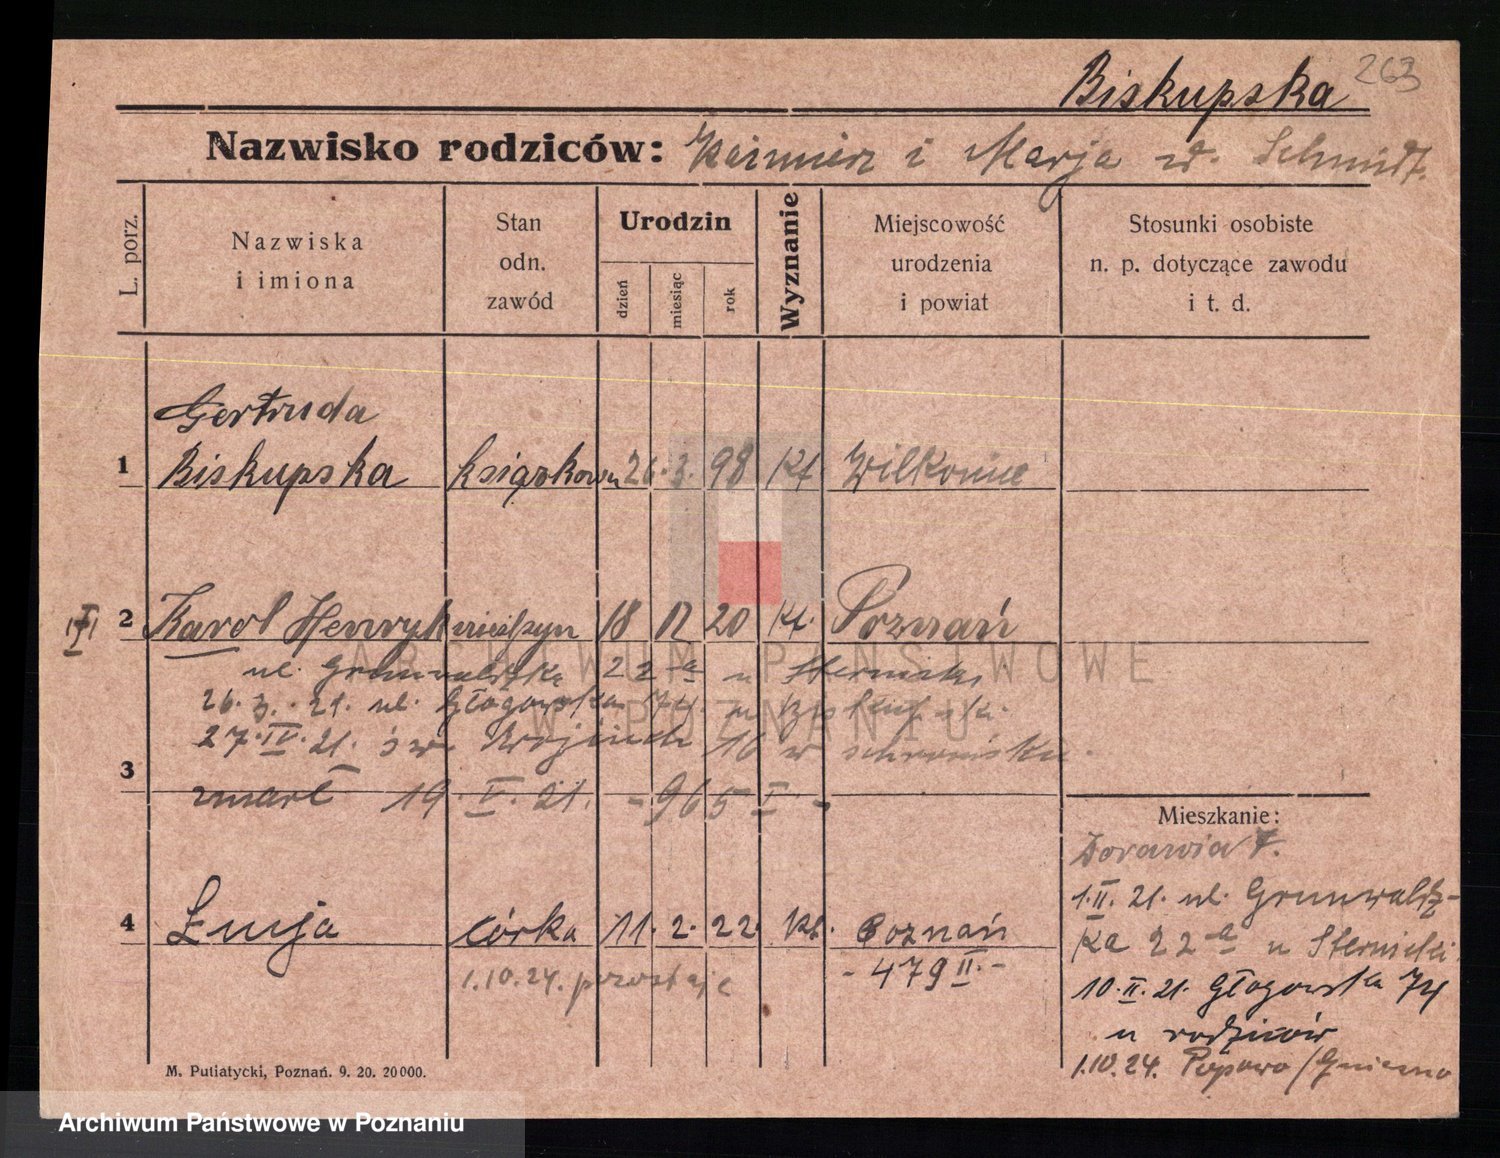 Biskupska 263
Nazwisko rodziców: Kazimierz i Marja zd. Schmidt.
L. porz.
Nazwiska
i imiona
Stan
odn.
zawód
Urodzin
dzień
miesiąc
rok
Wyznanie
Miejscowość
urodzenia
i powiat
Stosunki osobiste
n. p. dotyczące zawodu
i t. d.
Gertruda
1 Biskupska książkowa 26. 3. 98 Kt Wilkonice
2 Karol Henryk nieśl. syn 18 12 20 Kt. Poznań
ul. Grunwaldzka 22a u Sternicki
26. 3. 21. ul. Głogowska 74 u Biskupski.
27. IV. 21. św. Wojciech 16 w schronisku.
3
zmarł 19. V. 21. - 965 I. -
4 Łucja córka 11. 2. 22. Kt. Poznań
- 479 II. -
1.10.24. pozostaje
Mieszkanie:
1. II. 21. ul. Grunwaldz-
ka 22a u Sternicki.
10. II. 21. Głogowska 74
u rodziców
1.10.24. Popowo / Gniezno
M. Putiatycki, Poznań. 9. 20. 20 000.
ARCHIWUM PAŃSTWOWE
W POZNANIU
Archiwum Państwowe w Poznaniu